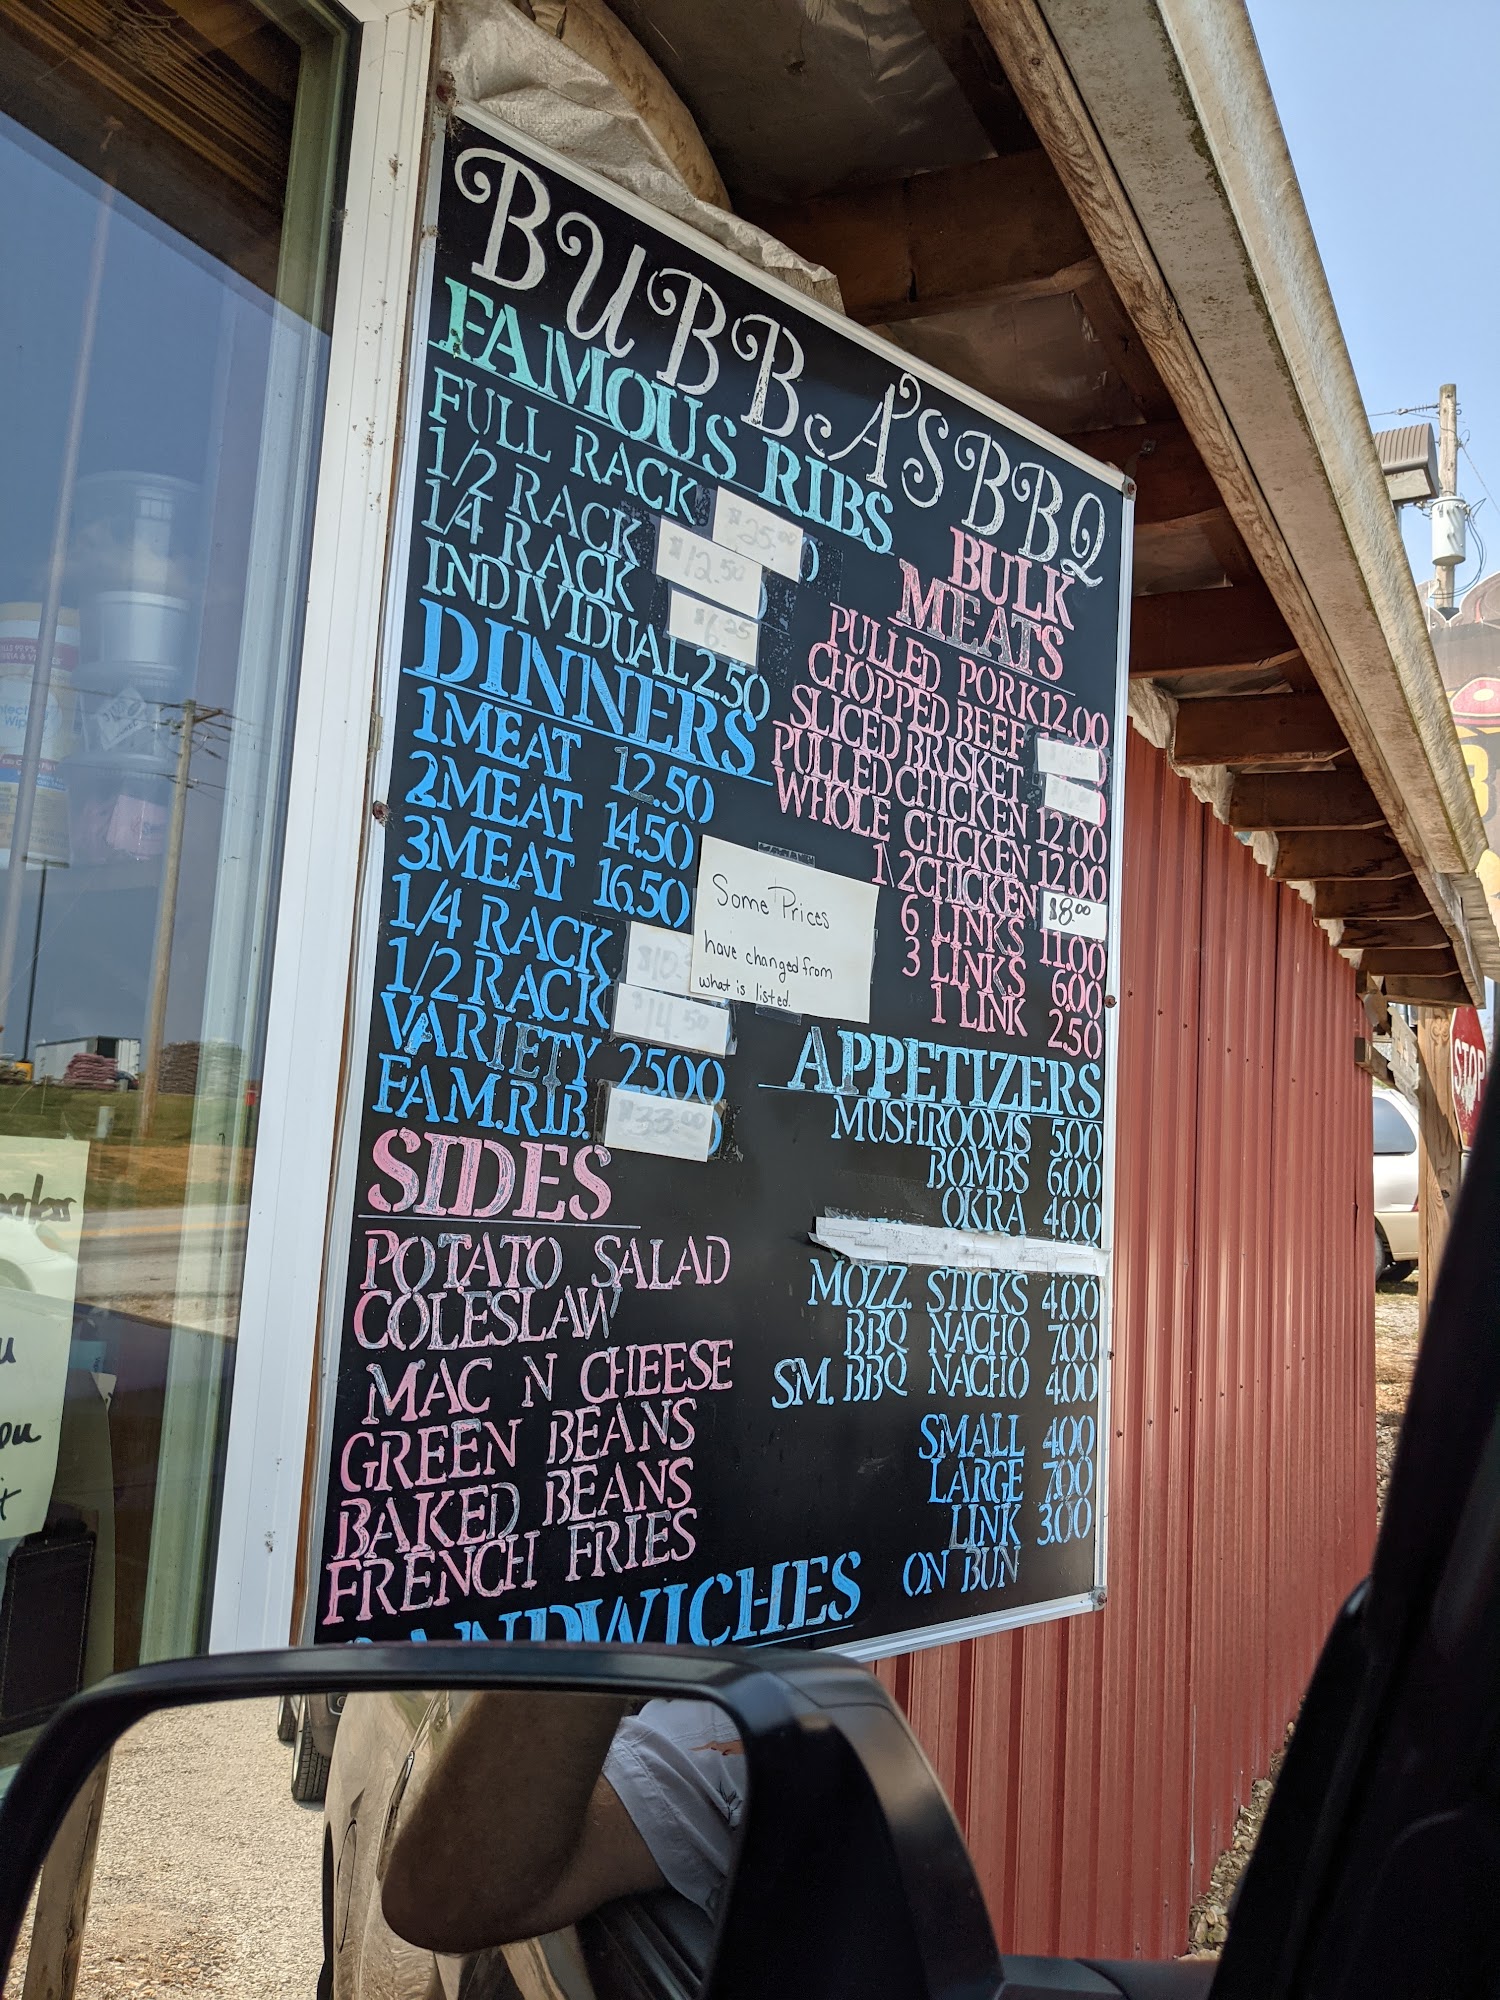 BUBBA'S BBQ
FAMOUS RIBS
FULL RACK $25.00
1/2 RACK $12.50
1/4 RACK $6.25
INDIVIDUAL 2.50
DINNERS
1 MEAT 12.50
2 MEAT 14.50
3 MEAT 16.50
1/4 RACK
1/2 RACK $14.50
VARIETY 25.00
FAM.RIB. $33.00
SIDES
POTATO SALAD
COLESLAW
MAC N CHEESE
GREEN BEANS
BAKED BEANS
FRENCH FRIES
SANDWICHES
Some Prices
have changed from
what is listed.
BULK
MEATS
PULLED PORK 12.00
CHOPPED BEEF
SLICED BRISKET
PULLED CHICKEN 12.00
WHOLE CHICKEN 12.00
1\2 CHICKEN $8.00
6 LINKS 11.00
3 LINKS 6.00
1 LINK 2.50
APPETIZERS
MUSHROOMS 5.00
BOMBS 6.00
OKRA 4.00
MOZZ. STICKS 4.00
BBQ NACHO 7.00
SM. BBQ NACHO 4.00
SMALL 4.00
LARGE 7.00
LINK 3.00
ON BUN
STOP